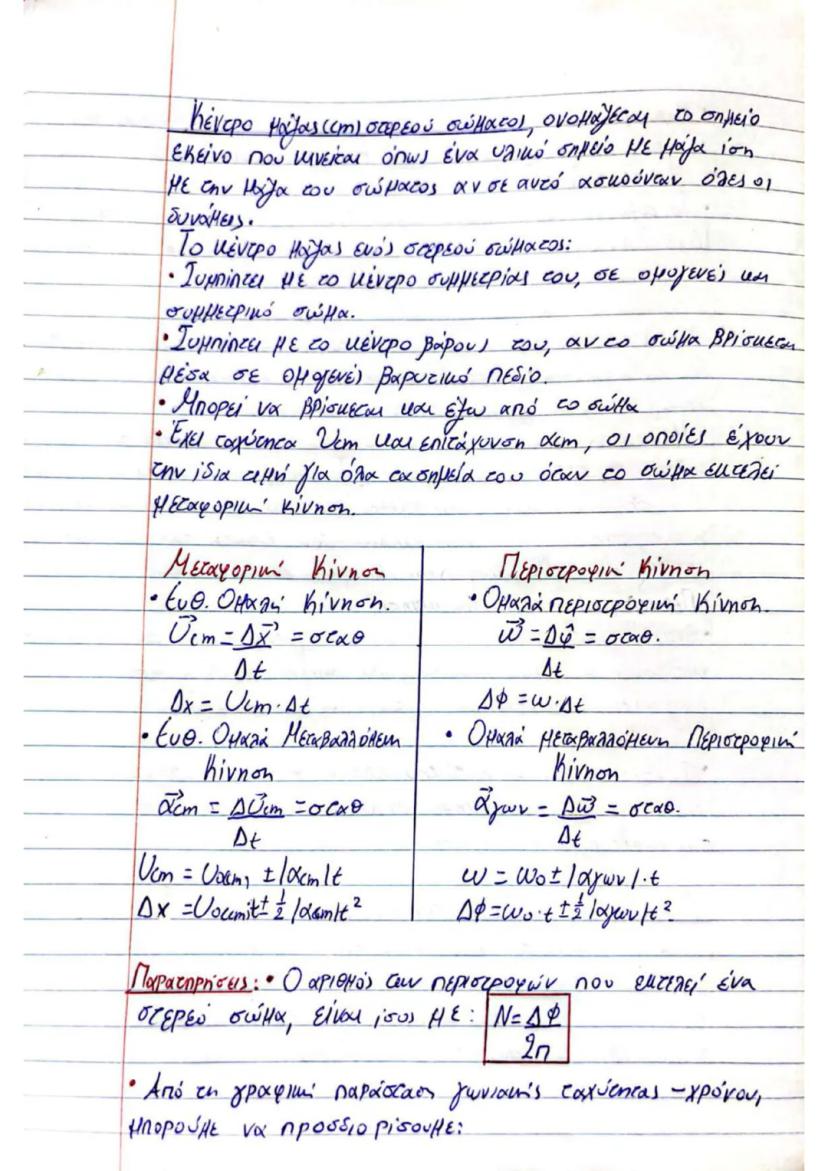 Κέντρο μάζας (cm) στερεού σώματος, ονομάζεται το σημείο
εκείνο που κινείται όπως ένα υλικό σημείο με μάζα ίση
με την μάζα του σώματος αν σε αυτό ασκούνταν όλες οι
δυνάμεις.
Το κέντρο μάζας ενός στερεού σώματος:
• Συμπίπτει με το κέντρο συμμετρίας του, σε ομογενές και
συμμετρικό σώμα.
• Συμπίπτει με το κέντρο βάρους του, αν το σώμα βρίσκεται
μέσα σε ομογενές βαρυτικό πεδίο.
• Μπορεί να βρίσκεται και έξω από το σώμα
• Έχει ταχύτητα Ucm και επιτάχυνση αcm, οι οποίες έχουν
την ίδια τιμή για όλα τα σημεία του όταν το σώμα εκτελεί
μεταφορική κίνηση.
Μεταφορική Κίνηση
• Ευθ. Ομαλή Κίνηση.
U⃗cm = Δx⃗/Δt = σταθ
Δx = Ucm · Δt
• Ευθ. Ομαλά Μεταβαλλόμενη
Κίνηση
α⃗cm = ΔU⃗cm/Δt = σταθ
Ucm = U₀cm, ± |αcm|t
Δx = U₀cm·t ± ½ |αcm|t²
Περιστροφική Κίνηση
• Ομαλά περιστροφική Κίνηση.
ω⃗ = Δφ⃗/Δt = σταθ.
Δφ = ω · Δt
• Ομαλά μεταβαλλόμενη Περιστροφική
Κίνηση
α⃗γων = Δω⃗/Δt = σταθ.
ω = ω₀ ± |αγων| · t
Δφ = ω₀ · t ± ½ |αγων|t²
Παρατηρήσεις: • Ο αριθμός των περιστροφών που εκτελεί ένα
στερεό σώμα, είναι ίσος με: N = Δφ/2π
• Από τη γραφική παράσταση γωνιακής ταχύτητας - χρόνου,
μπορούμε να προσδιορίσουμε: